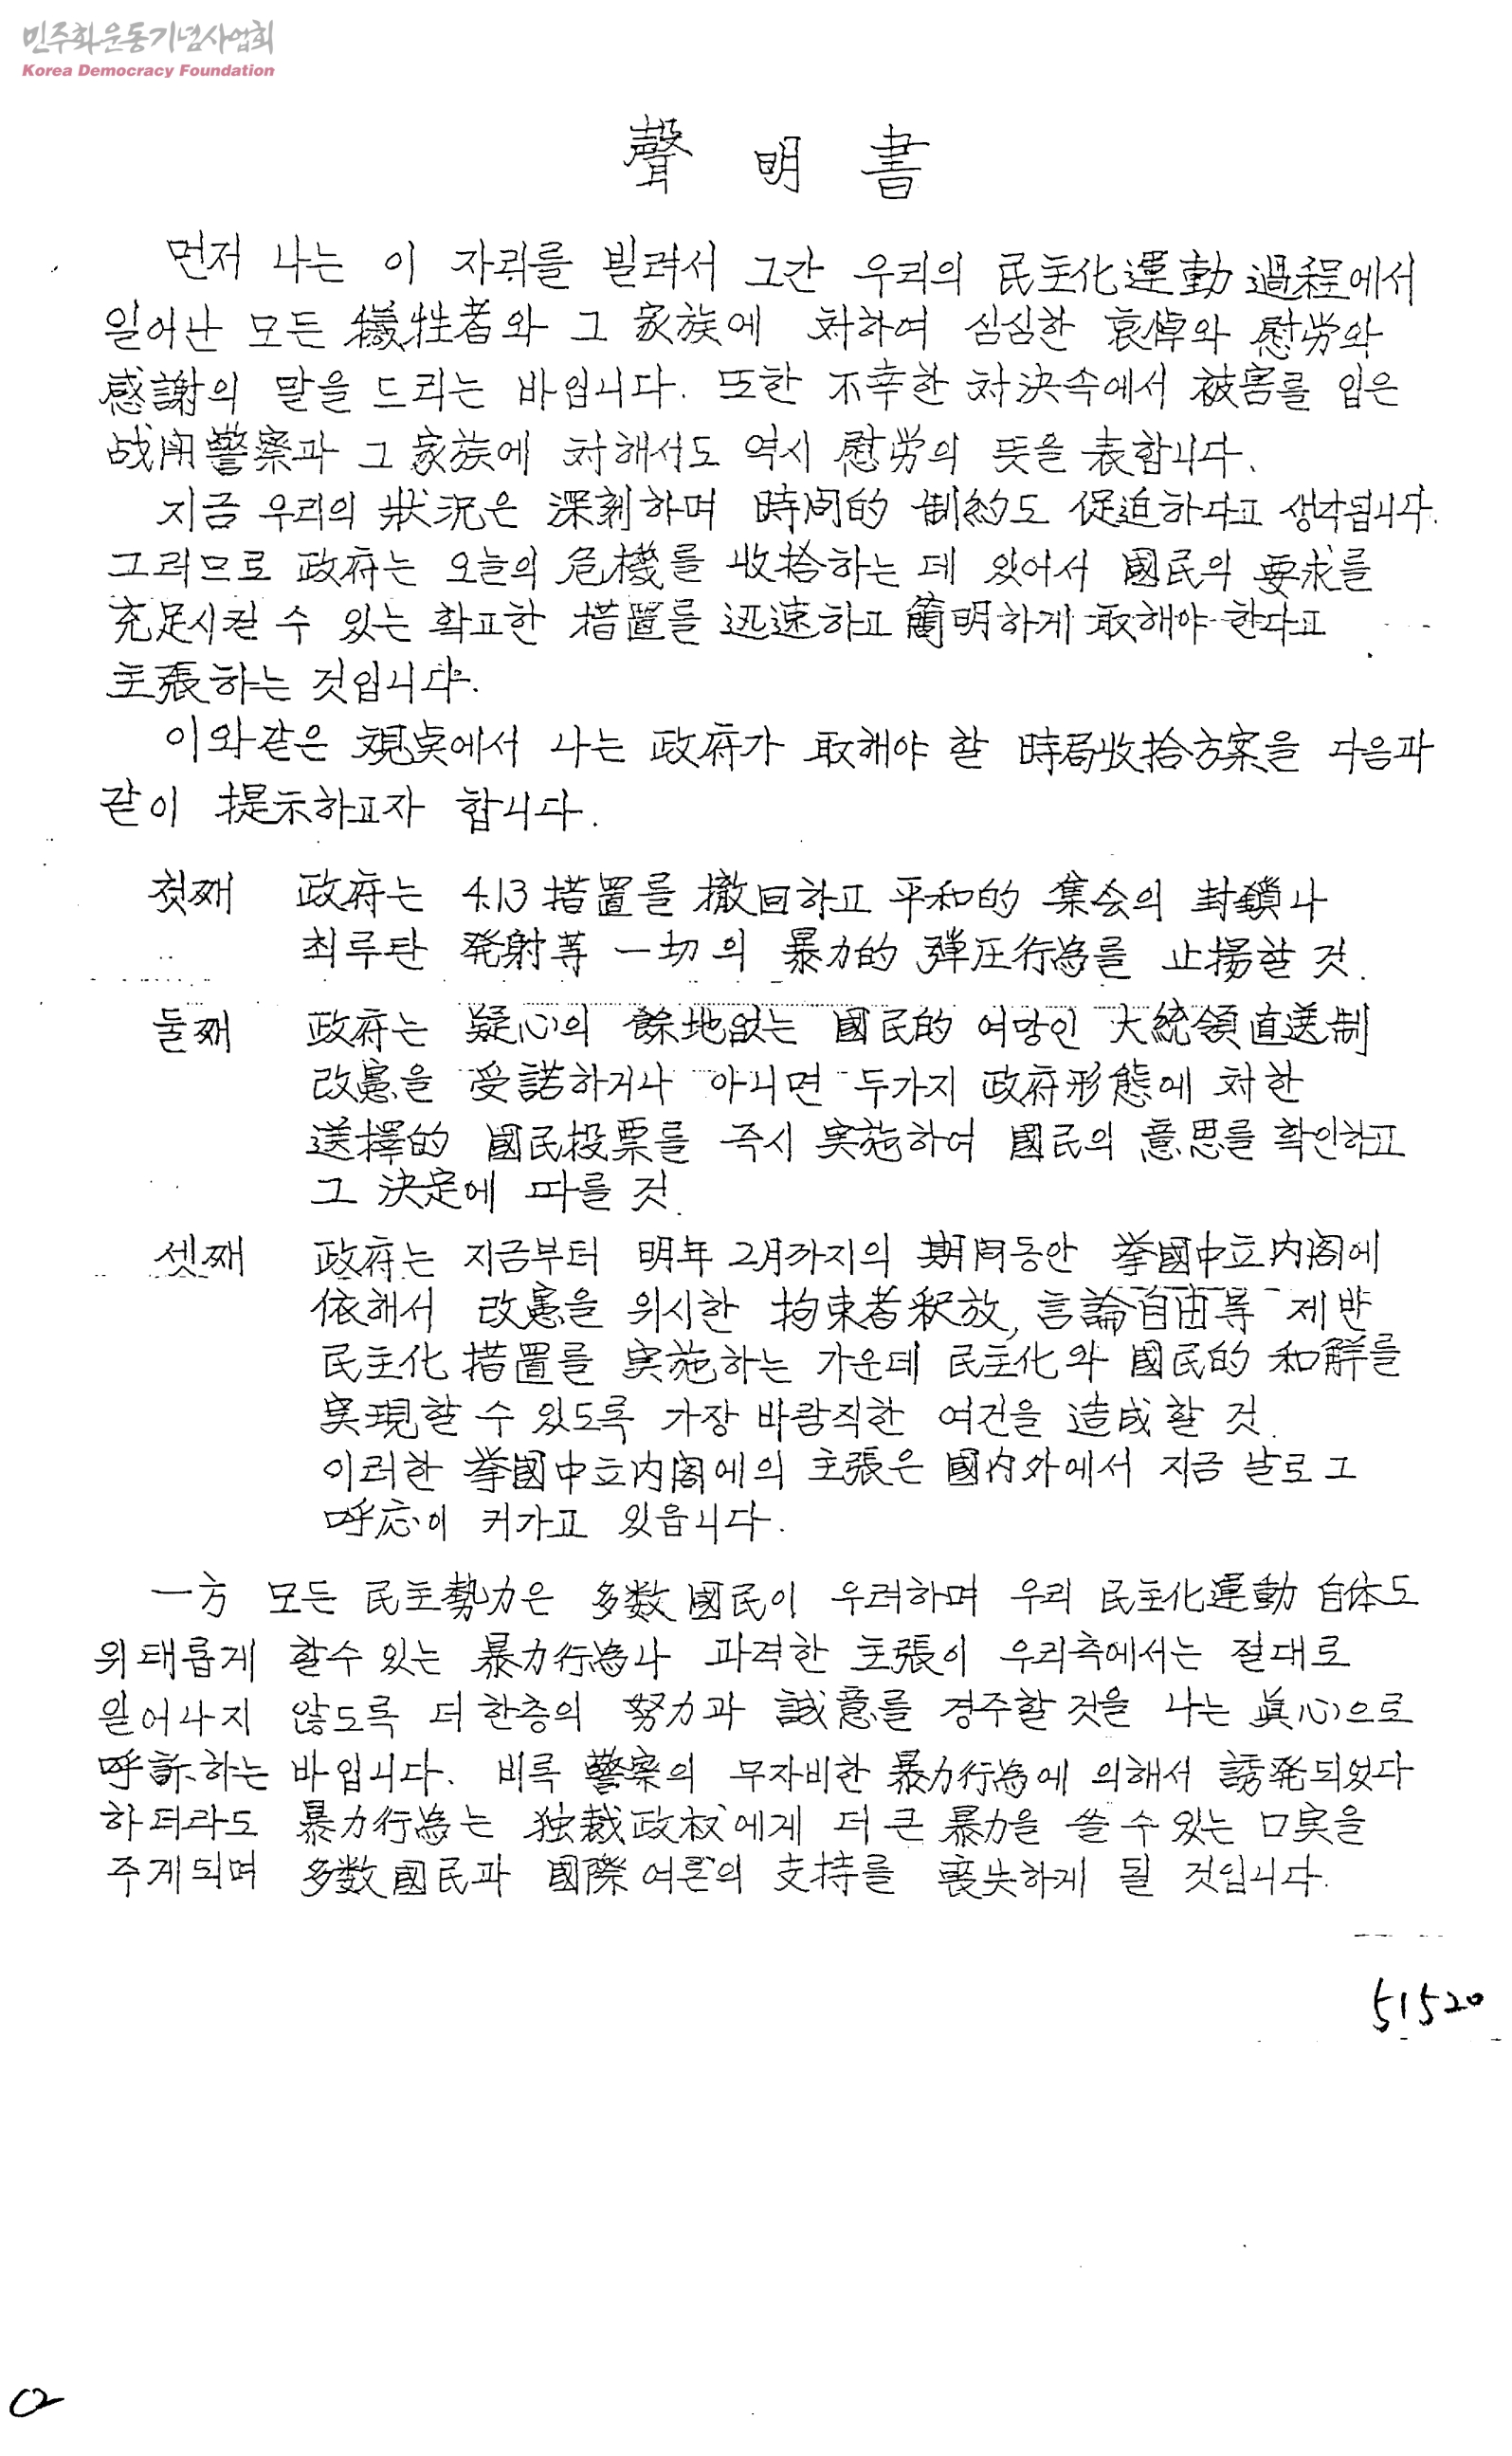 민주화운동기념사업회
Korea Democracy Foundation
聲 明 書
먼저 나는 이 자리를 빌려서 그간 우리의 民主化運動過程에서
일어난 모든 犧牲者와 그 家族에 对하여 심심한 哀悼와 慰労와
感謝의 말을 드리는 바입니다. 또한 不幸한 対決속에서 被害를 입은
战闘警察과 그 家族에 対해서도 역시 慰労의 뜻을 表합니다.
지금 우리의 狀況은 深刻하며 時间的 制約도 促迫하다고 생각됩니다.
그러므로 政府는 오늘의 危機를 收拾하는 데 있어서 國民의 要求를
充足시킬 수 있는 확고한 措置를 迅速하고 簡明하게 取해야 한다고
主張하는 것입니다.
이와같은 視点에서 나는 政府가 取해야 할 時局收拾方案을 다음과
같이 提示하고자 합니다.
첫째 政府는 4.13 措置를 撤回하고 平和的 集会의 封鎖나
최루탄 発射等 一切의 暴力的 弾圧行為를 止揚할 것.
둘째 政府는 疑心의 餘地없는 國民的 여망인 大統領直選制
改憲을 受諾하거나 아니면 두가지 政府形態에 対한
選擇的 國民投票를 즉시 実施하여 國民의 意思를 확인하고
그 決定에 따를 것.
셋째 政府는 지금부터 明年 2月까지의 期间동안 挙國中立内阁에
依해서 改憲을 위시한 拘束者釈放, 言論自由等 제반
民主化 措置를 実施하는 가운데 民主化와 國民的 和解를
実現할 수 있도록 가장 바람직한 여건을 造成할 것.
이러한 挙國中立内阁에의 主張은 國内外에서 지금 날로 그
呼応이 커가고 있읍니다.
一方 모든 民主勢力은 多数國民이 우려하며 우리 民主化運動 自体도
위태롭게 할수 있는 暴力行為나 과격한 主張이 우리측에서는 절대로
일어나지 않도록 더한층의 努力과 誠意를 경주할 것을 나는 眞心으로
呼訴하는 바입니다. 비록 警察의 무자비한 暴力行為에 의해서 誘発되었다
하더라도 暴力行為는 独裁政权에게 더 큰 暴力을 쓸 수 있는 口実을
주게되며 多数國民과 國際여론의 支持를 喪失하게 될 것입니다.
51520
02